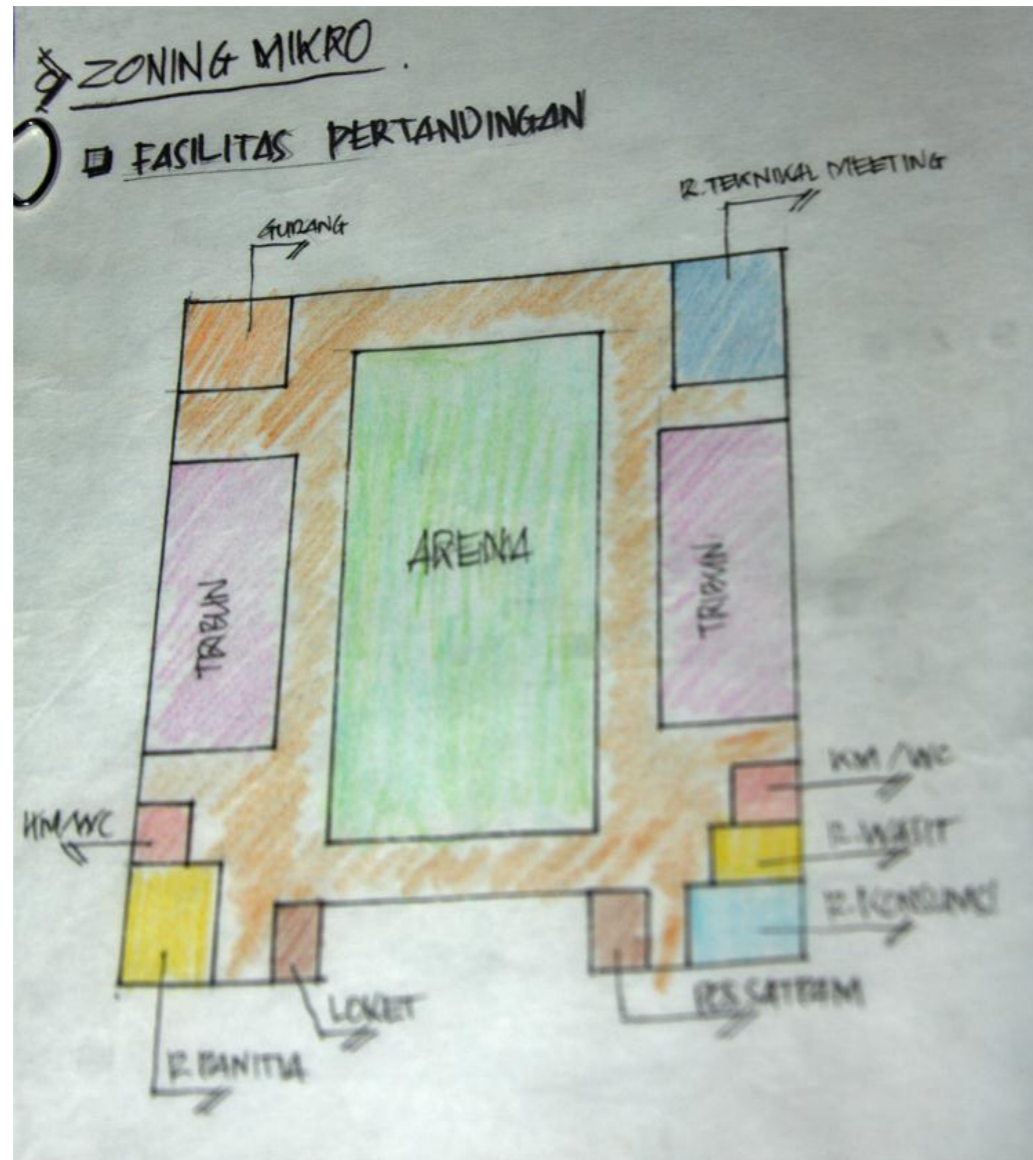 ZONING MIKRO.
FASILITAS PERTANDINGAN
R. TEKNIKAL MEETING
GUDANG
ARENA
TRIBUN
TRIBUN
KM/WC
KM/WC
R. WASIT
R. KONSUMSI
LOKET
POS SATPAM
R. PANITIA